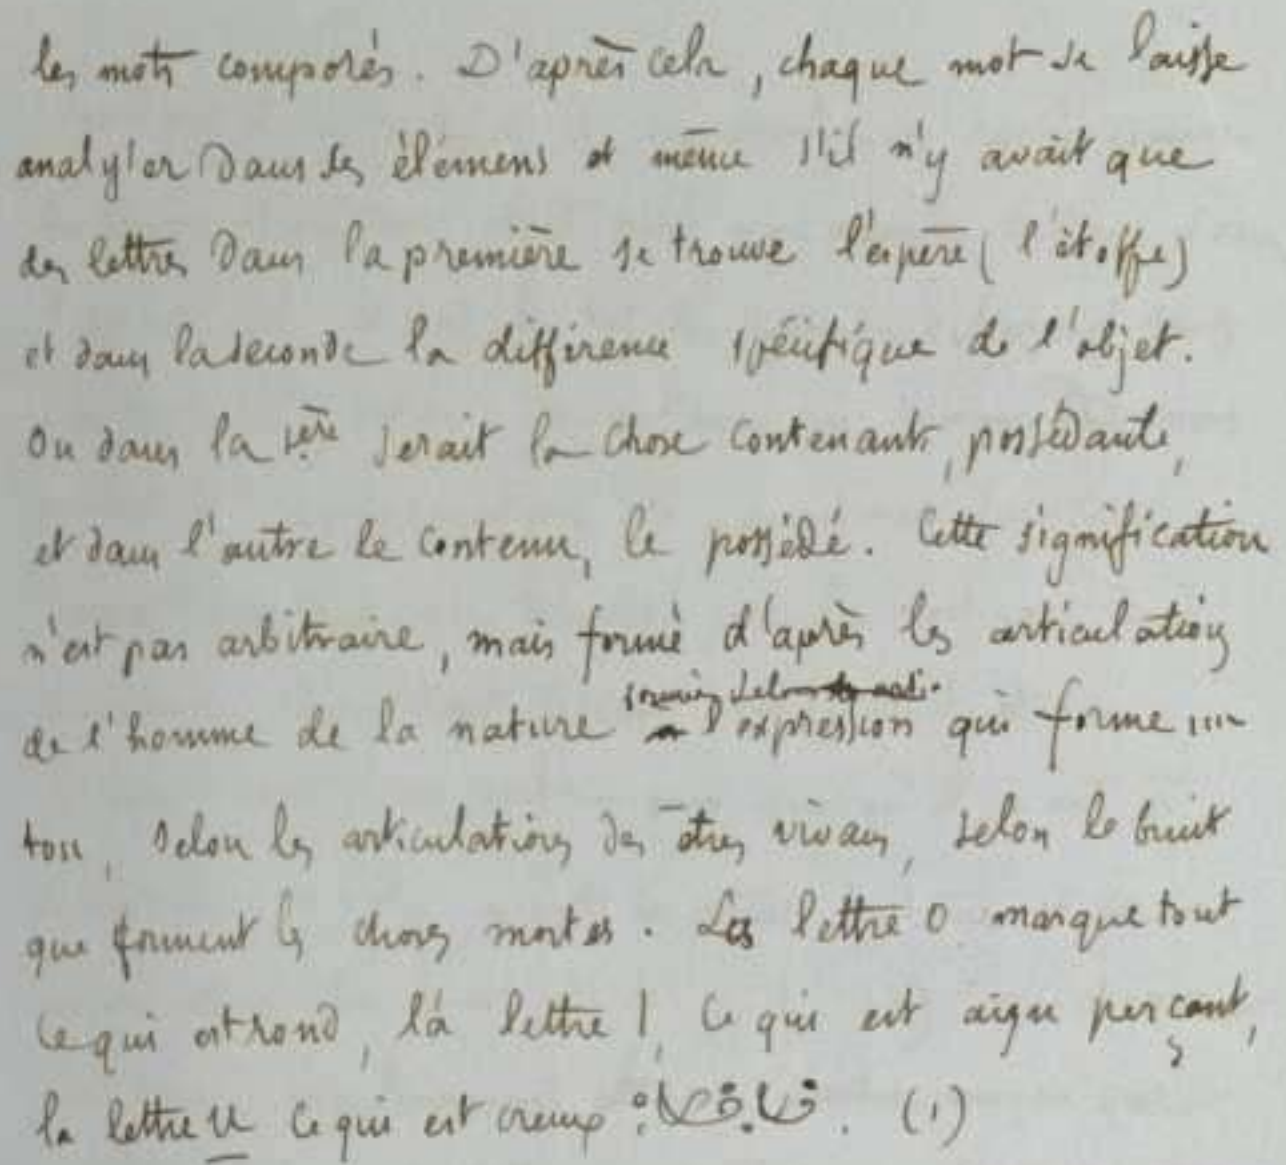 les mots composés. D'après cela, chaque mot se laisse
analyser dans ses élémens et même s'il n'y avait que
des lettres dans la première se trouve l'espère (l'étoffe)
et dans la seconde la différence spécifique de l'objet.
Ou dans la 1ère serait la chose contenant, possédante,
et dans l'autre le contenu, le possédé. Cette signification
n'est pas arbitraire, mais formé d'après les articulations
selon
de l'homme de la nature l'expression qui forme
ton, selon les articulations des êtres vivans, selon le bruit
que forment les choses mortes. Les lettre O marque tout
ce qui est rond, là lettre I, ce qui est aigu perçant,
la lettre U ce qui est creux : . (1)